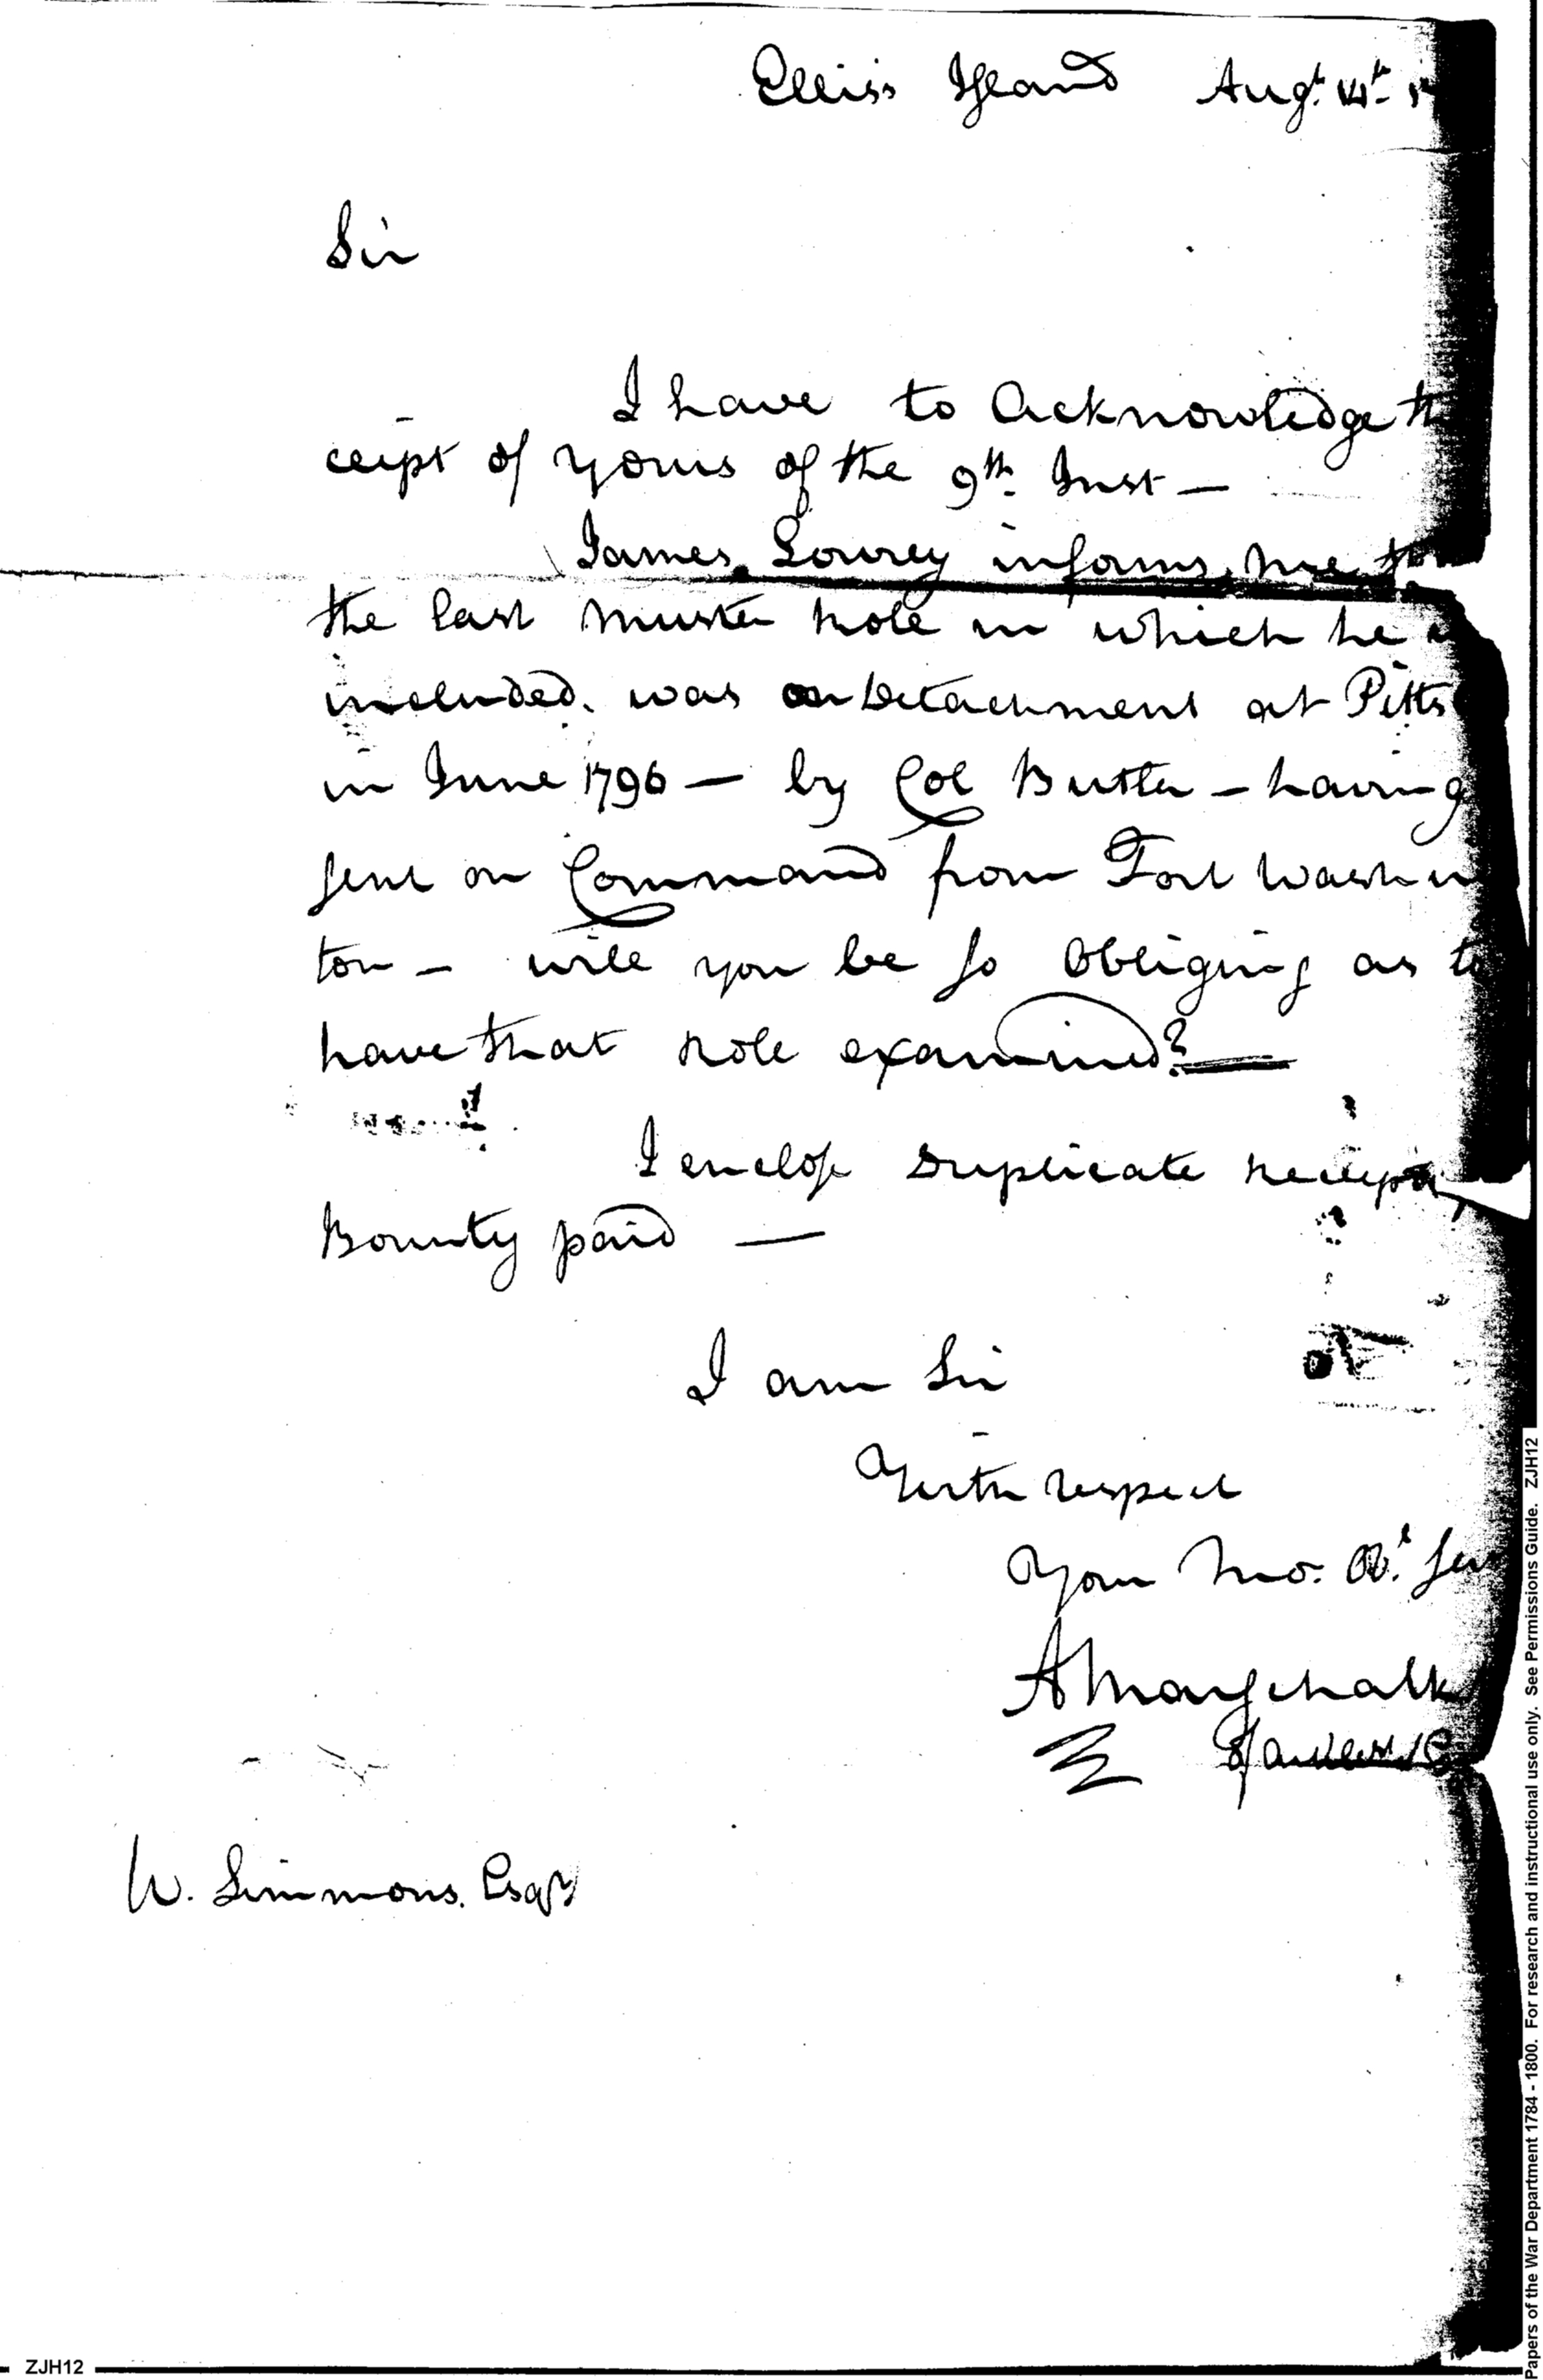 Elliss Island Augt. 14th
Sir
I have to Acknowledge
ceipt of yours of the 9th. Inst —
James Lowrey informs me
the last Muster Role in which he
included. was on Detachment at Pitts
in June 1796 — by Col Butler — having
sent on Command from Fort Washin
ton — will you be so Obliging as to
have that Role examined? —
I enclose Duplicate
Bounty paid —
I am Sir
With respect
Your Mo. Obt. Ser
AMarschalk
W. Simmons. Esqr
ZJH12
Papers of the War Department 1784 - 1800. For research and instructional use only. See Permissions Guide. ZJH12